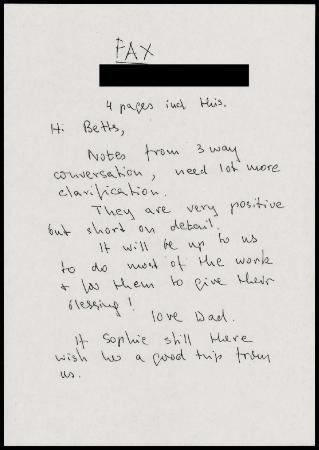 FAX
4 pages incl this.
Hi Betts,
Notes from 3 way
conversation, need lot more
clarification.
They are very positive
but short on detail.
It will be up to us
to do most of the work
& for them to give their
blessing!
love Dad.
If Sophie still there
wish her a good trip from
us.